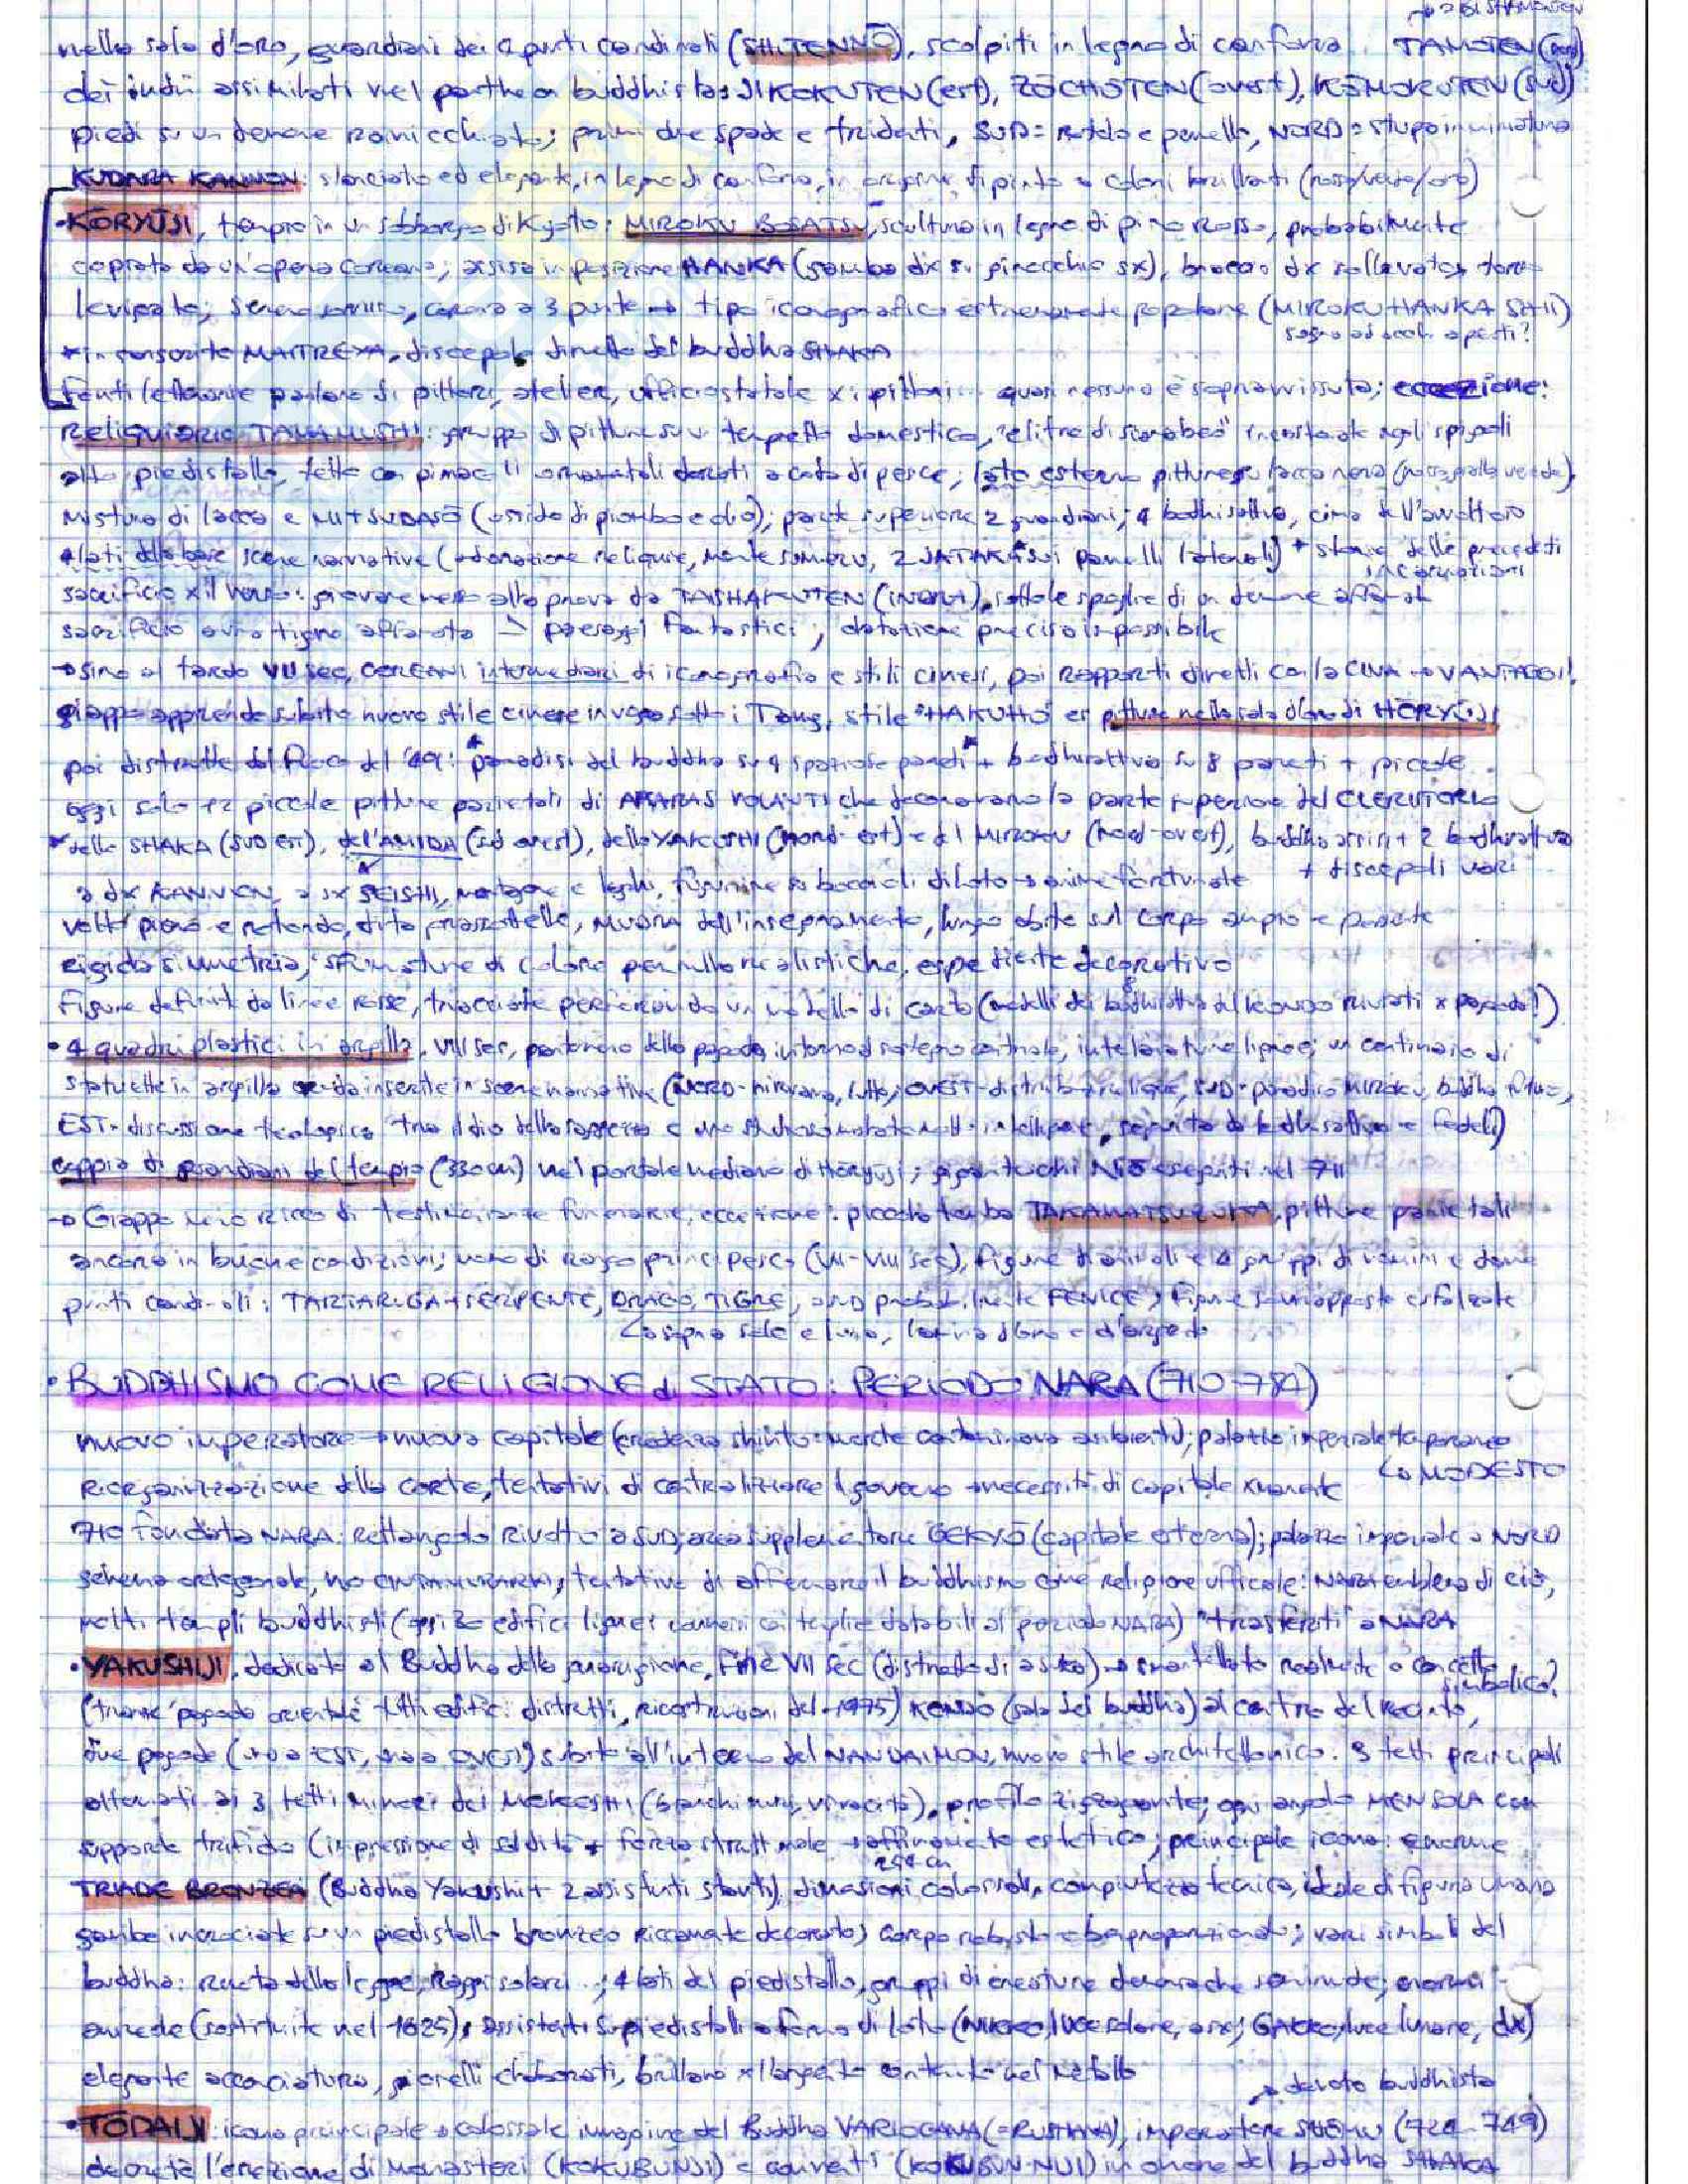 → BISHAMONTEN
nella sala d'oro, guardiani dei 4 punti cardinali (SHITENNŌ), scolpiti in legno di canfora. TAMOTEN (nord)
dei indù assimilati nel pantheon buddhista: JIKOKUTEN (est), ZŌCHŌTEN (ovest), KŌMOKUTEN (sud)
piedi su un demone rannicchiato; primi due spade e tridenti, SUD = rotolo e pennello, NORD = stupa in miniatura
KUDARA KANNON: slanciato ed elegante, in legno di canfora, in origine dipinto a colori brillanti (rosso/verde/oro)
• KŌRYŪJI, tempio in un sobborgo di Kyoto: MIROKU BOSATSU, scultura in legno di pino rosso, probabilmente
copiato da un'opera coreana; assisa in posizione HANKA (gamba dx su ginocchio sx), braccio dx sollevato, torso
levigato; sereno sorriso, corona a 3 punte → tipo iconografico estremamente popolare (MIROKU HANKA SHII)
sogno ad occhi aperti?
* in sanscrito MAITREYA, discepolo diretto del buddha SHAKA
Fonti letterarie parlano di pittori, atelier, ufficio statale x i pittori... quasi nessuno è sopravvissuto; eccezione:
RELIQUIARIO TAMAMUSHI: gruppo di pitture su un tempietto domestico, "elitre di scarabeo" incastonate negli spigoli
alto piedistallo, tetto con pinnacoli ornamentali dorati a coda di pesce; lato esterno pitture su lacca nera (rosso, giallo, verde),
mistura di lacca e MITSUDASŌ (ossido di piombo e olio); parte superiore 2 guardiani, 4 bodhisattva, cima dell'avvoltoio
4 lati della base scene narrative (adorazione reliquie, monte SUMERU, 2 JATAKA* sui pannelli laterali) * storie delle precedenti
incarnazioni
sacrificio x il verso: giovane messo alla prova da TAISHAKUTEN (INDRA), sotto le spoglie di un demone affamato
sacrificio a una tigre affamata → paesaggi fantastici; datazione precisa impossibile
→ sino al tardo VII sec, COREANI intermediari di iconografia e stili cinesi, poi rapporti diretti con la CINA → VANTAGGI!
giappo apprende subito nuovo stile cinese in voga sotto i Tang, stile "HAKUHO" es pitture nella sala d'oro di HŌRYŪJI
poi distrutte dal fuoco del '49: paradisi del buddha su 4 spaziose pareti + bodhisattva su 8 pareti + piccole
oggi solo 12 piccole pitture parietali di APSARAS VOLANTI che decoravano la parte superiore del CLERISTORIO
* dello SHAKA (SUD est), dell'AMIDA (sud ovest), dello YAKUSHI (nord-est) e di MIROKU (nord-ovest), buddha assisi + 2 bodhisattva
+ discepoli vari
a dx KANNON, a sx SEISHI, montagne e laghi, figurine su boccioli di loto → anime fortunate
volto pieno e rotondo, dita grassottelle, MUDRA dell'insegnamento, lungo abito sul corpo ampio e pesante
rigida simmetria, sfumature di colore per nulla realistiche, espediente decorativo
Figure definite da linee rosse, tracciate perforando un modello di carta (modelli dei bodhisattva del kondo riusati x pagoda!)
• 4 quadri plastici in argilla, VIII sec, pianterreno della pagoda, intorno al sostegno centrale, intelaiature lignee; un centinaio di
statuette in argilla cruda inserite in scene narrative (NORD-nirvana, lutto, OVEST-distribuz reliquie, SUD-paradiso MIROKU, buddha futuro,
EST-discussione teologica tra il dio della saggezza e uno studioso molto intelligente, seguito da bodhisattva e fedeli)
coppia di guardiani del tempio (330 cm) nel portale mediano di Hōryūji; giganteschi NIŌ eseguiti nel 711
→ Giappo meno ricco di testimonianze funerarie, eccezione: piccola tomba TAKAMATSUZUKA, pitture parietali
ancora in buone condizioni; uomo di rango principesco (VII-VIII sec), figure di animali e 4 gruppi di uomini e donne
punti cardinali: TARTARUGA+SERPENTE, DRAGO, TIGRE, SUD probabilmente FENICE;
↳ sopra sole e luna, lamina d'oro e d'argento
• BUDDHISMO COME RELIGIONE di STATO: PERIODO NARA (710-784)
nuovo imperatore → nuova capitale (credenza shinto: morte contaminava ambiente); palazzo imperiale temporaneo
↳ MODESTO
Riorganizzazione della corte, tentativi di centralizzare il governo → necessità di capitale xmanente
710 fondata NARA: rettangolo rivolto a SUD; area supplementare GEKYŌ (capitale esterna); palazzo imperiale a NORD
schema ortogonale, no cinta muraria; tentativo di affermare il buddhismo come religione ufficiale: NARA emblema di ciò,
molti templi buddhisti (edifici lignei databili al periodo NARA) "trasferiti" a NARA
• YAKUSHIJI, dedicato al Buddha della guarigione, fine VII sec → smontato realmente o concetto
simbolico?
(tranne pagoda orientale tutti edifici distrutti, ricostruzioni del 1975) KONDŌ (sala del buddha) al centro del recinto,
due pagode (una a EST, una a OVEST) subito all'interno del NANDAIMON, nuovo stile architettonico. 3 tetti principali
alternati ai 3 tetti minori dei MOKOSHI (bianchi muri, vivacità), profilo zigzagante, ogni angolo MENSOLA con
supporto trifido (impressione di solidità + forza strutturale → affinamento estetico; principale icona: enorme
254 cm
TRIADE BRONZEA (Buddha Yakushi + 2 assistenti stanti), dimensioni colossali, compiutezza tecnica, ideale di figura umana
gambe incrociate su un piedistallo bronzeo riccamente decorato, corpo robusto e ben proporzionato; vari simboli del
buddha: ruota della legge, raggi solari...; 4 lati del piedistallo, gruppi di creature demoniache seminude; enormi
aureole (sostituite nel 1625), assistenti su piedistalli a forma di loto (NIKKO, luce solare, a sx; GAKKO, luce lunare, dx)
elegante acconciatura, gioielli elaborati, brillano x l'argento contenuto nel metallo
→ devoto buddhista
• TŌDAIJI: icona principale → colossale immagine del Buddha VAIROCANA (=RUSHANA), imperatore SHŌMU (724-749)
decreta l'erezione di monasteri (KOKUBUNJI) e conventi (KOKUBUN-NIJI) in onore del buddha SHAKA